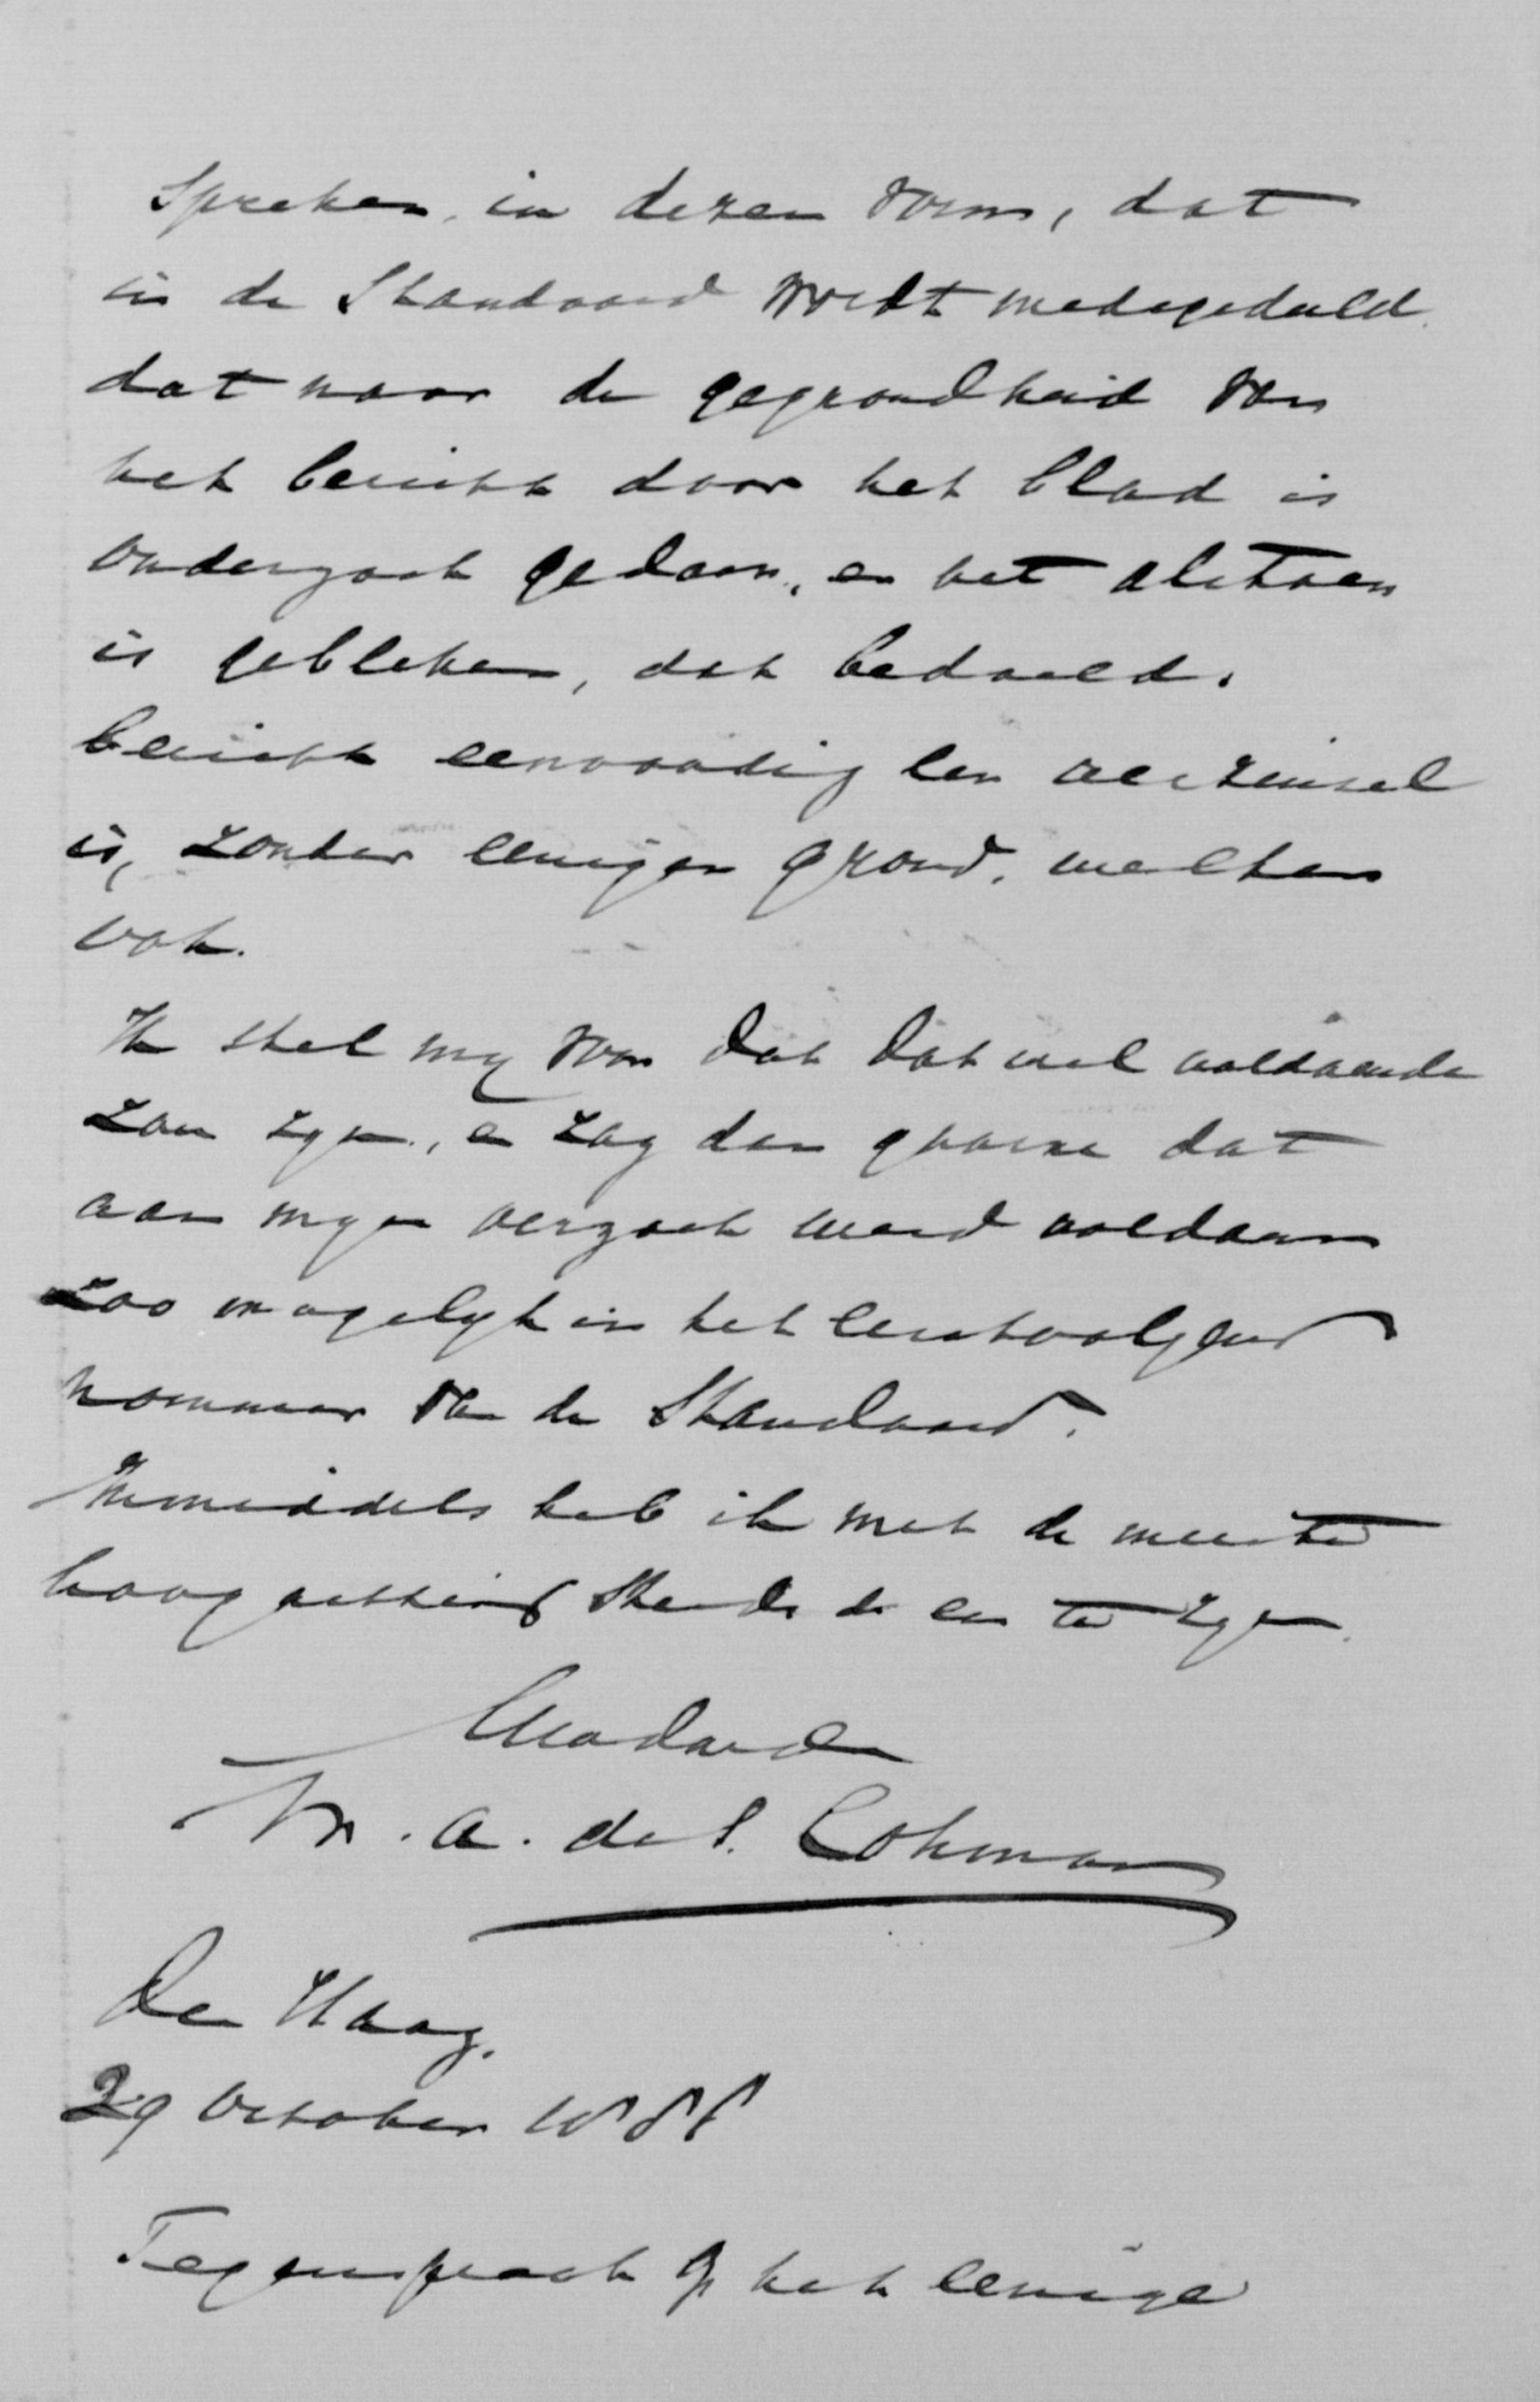 spreken, in dezen vorm, dat
in de Standaard wordt medegedeeld
dat naar de gegrondheid van
het bericht door het blad is
onderzoek gedaan, en het alstoen
is gebleken, dat bedoeld
bericht eenvoudig een verzinsel
is, zonder eenigen grond, welken
ook.
Ik stel my voor dat dat wel voldoende
zou zyn, en zag dan gaarne dat
aan myn verzoek werd voldaan
zoo mogelyk in het eerstvolgend
nommer van de Standaard.
Inmiddels heb ik met de meeste
hoogachting steeds de eer te zyn
Uw dw dr
M. A. de S. Lohman
Den Haag.
29 October 1888
Tegenspraak op het eenige